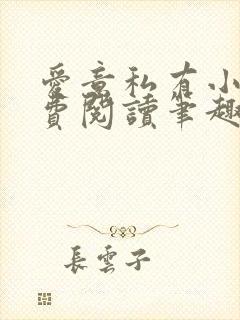 愛意私有小
費閱讀筆趣
長雲子